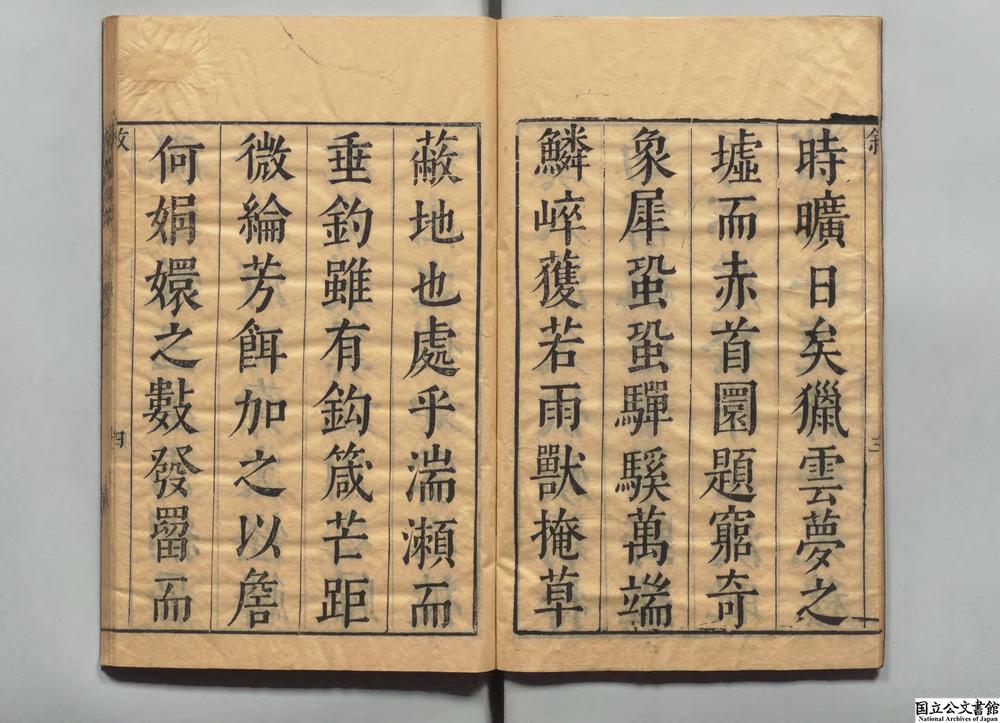 時曠日矣獵雲夢之
墟而赤首圜題窮奇
象犀蛩蛩驒騱萬端
鱗崪獲若雨獸掩草
蔽地也處乎湍瀬而
垂釣雖有鈎箴芒距
微綸芳餌加之以詹
何娟嬛之數發罶而
三
四
国立公文書館
National Archives of Japan